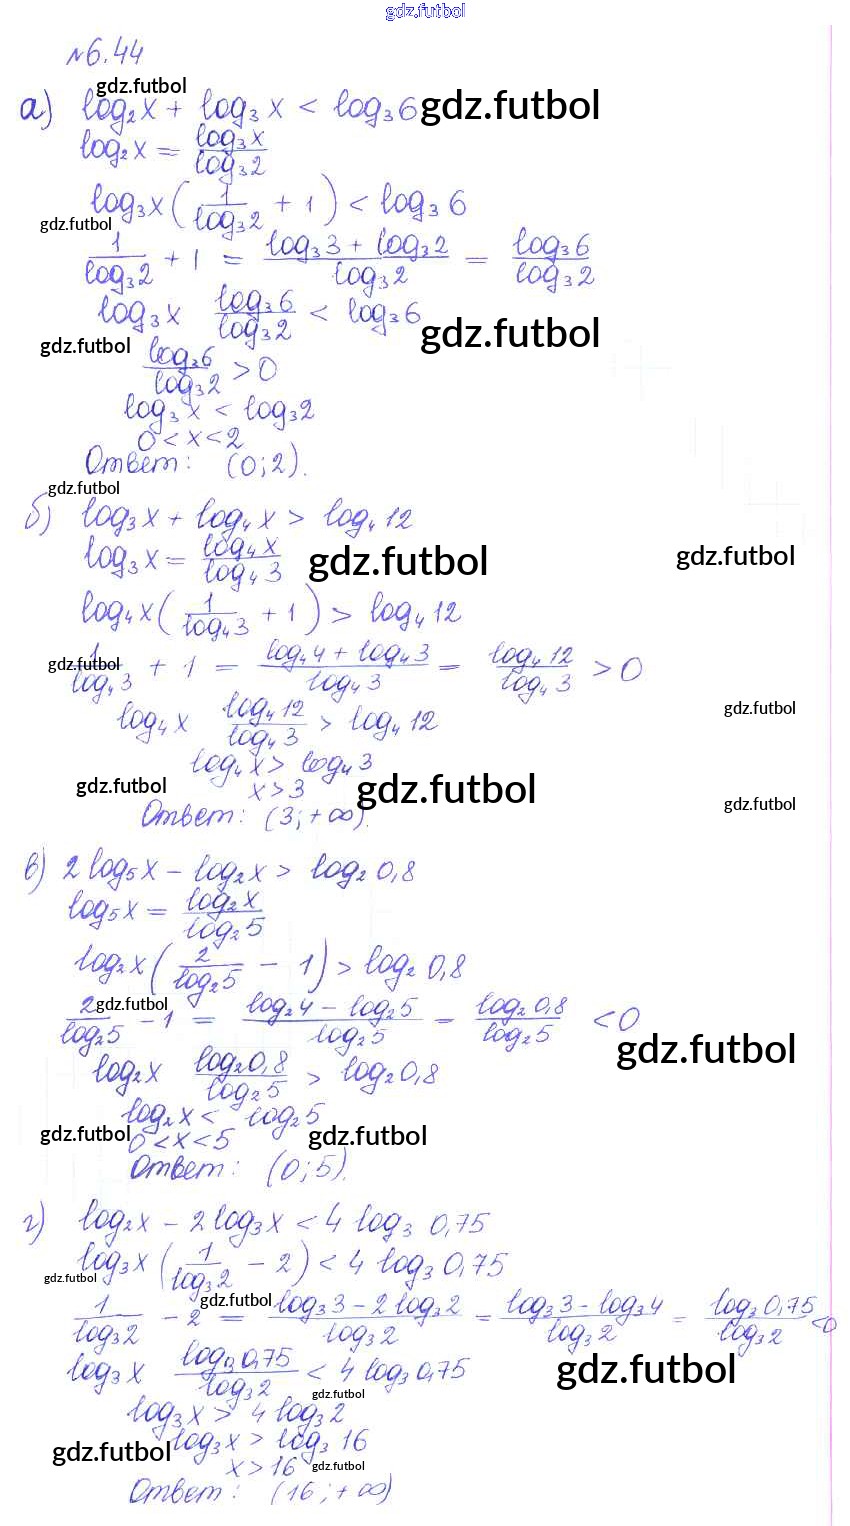 gdz.futbol
№6.44
gdz.futbol
а) log₂x + log₃x < log₃6 gdz.futbol
log₂x = log₃x / log₃2
log₃x (1/log₃2 + 1) < log₃6
gdz.futbol
1/log₃2 + 1 = (log₃3 + log₃2)/log₃2 = log₃6/log₃2
log₃x log₃6/log₃2 < log₃6
gdz.futbol gdz.futbol
log₃6/log₃2 > 0
log₃x < log₃2
0 < x < 2
Ответ: (0;2).
gdz.futbol
б) log₃x + log₄x > log₄12
log₃x = log₄x/log₄3 gdz.futbol gdz.futbol
log₄x (1/log₄3 + 1) > log₄12
gdz.futbol
1/log₄3 + 1 = (log₄4 + log₄3)/log₄3 = log₄12/log₄3 > 0
gdz.futbol
log₄x log₄12/log₄3 > log₄12
log₄x > log₄3
gdz.futbol x > 3 gdz.futbol gdz.futbol
Ответ: (3;+∞).
в) 2log₅x – log₂x > log₂0,8
log₅x = log₂x/log₂5
log₂x (2/log₂5 – 1) > log₂0,8
gdz.futbol
2/log₂5 – 1 = (log₂4 – log₂5)/log₂5 = log₂0,8/log₂5 < 0
gdz.futbol
log₂x log₂0,8/log₂5 > log₂0,8
log₂x < log₂5
gdz.futbol 0 < x < 5 gdz.futbol
Ответ: (0;5).
г) log₂x – 2log₃x < 4 log₃0,75
log₃x (1/log₃2 – 2) < 4 log₃0,75
gdz.futbol
gdz.futbol
1/log₃2 – 2 = (log₃3 – 2log₃2)/log₃2 = (log₃3 – log₃4)/log₃2 = log₃0,75/log₃2 < 0
log₃x log₃0,75/log₃2 < 4 log₃0,75 gdz.futbol
gdz.futbol
log₃x > 4 log₃2
gdz.futbol log₃x > log₃16
x > 16 gdz.futbol
Ответ: (16;+∞)